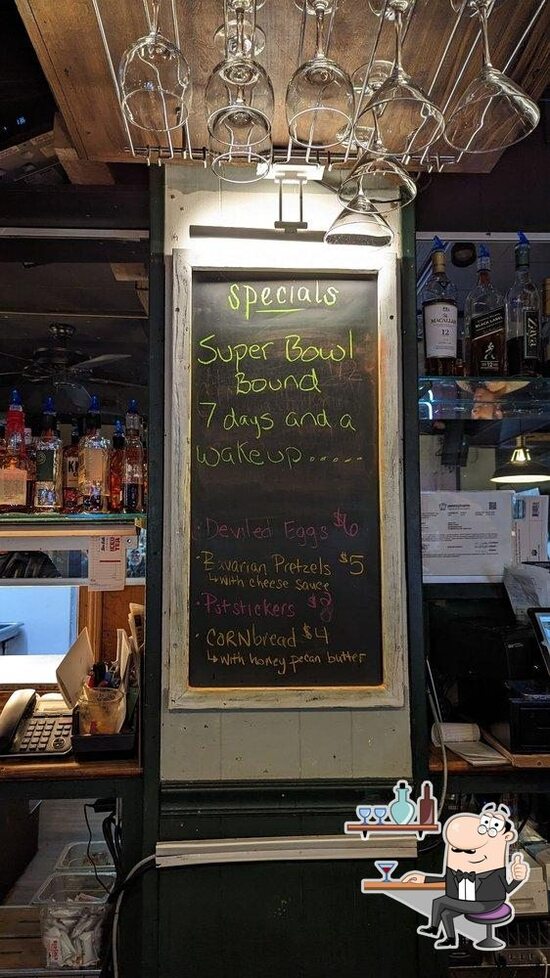 specials
Super Bowl
Bound
7 days and a
wakeup.....
· Deviled Eggs $6
· Bavarian Pretzels $5
↳ with cheese sauce
· Potstickers
· CORNbread $4
↳ with honey pecan butter
MACALLAN
12
BLACK LABEL